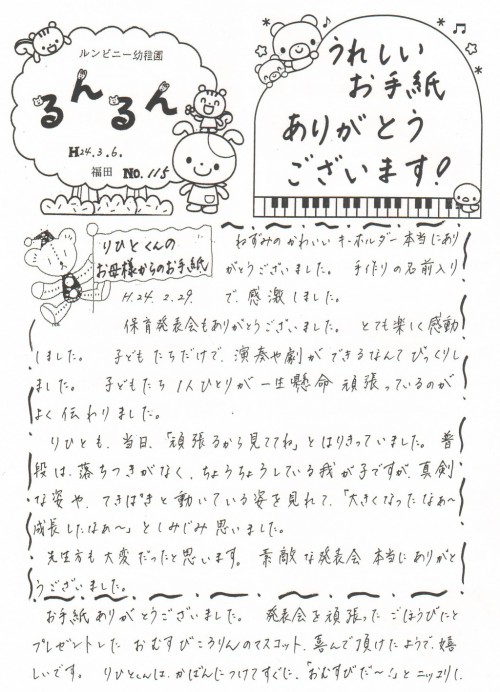 ルンビニー幼稚園
るんるん
H24.3.6.
福田 No.115
うれしい
お手紙
ありがとう
ございます!
りひとくんの
お母様からのお手紙
H.24.2.29.
ねずみのかわいいキーホルダー本当にあり
がとうございました。手作りの名前入り
で、感激しました。
保育発表会もありがとうございました。とても楽しく感動
しました。子どもたちだけで、演奏や劇ができるなんてびっくりし
ました。子どもたち1人ひとりが一生懸命頑張っているのが
よく伝わりました。
りひとも、当日、「頑張るから見ててね」とはりきっていました。普
段は、落ちつきがなく、ちょうちょうしている我が子ですが、真剣
な姿や、てきぱきと動いている姿を見れて、「大きくなったなぁ〜
成長したなぁ〜」としみじみ思いました。
先生方も大変だったと思います。素敵な発表会本当にありがと
うございました。
お手紙ありがとうございました。発表会を頑張ったごほうびにと
プレゼントしたおむすびころりんのマスコット、喜んで頂けたようで、嬉
しいです。りひとくんは、かばんにつけてすぐに、「おむすびだ〜!」とニッコリし、